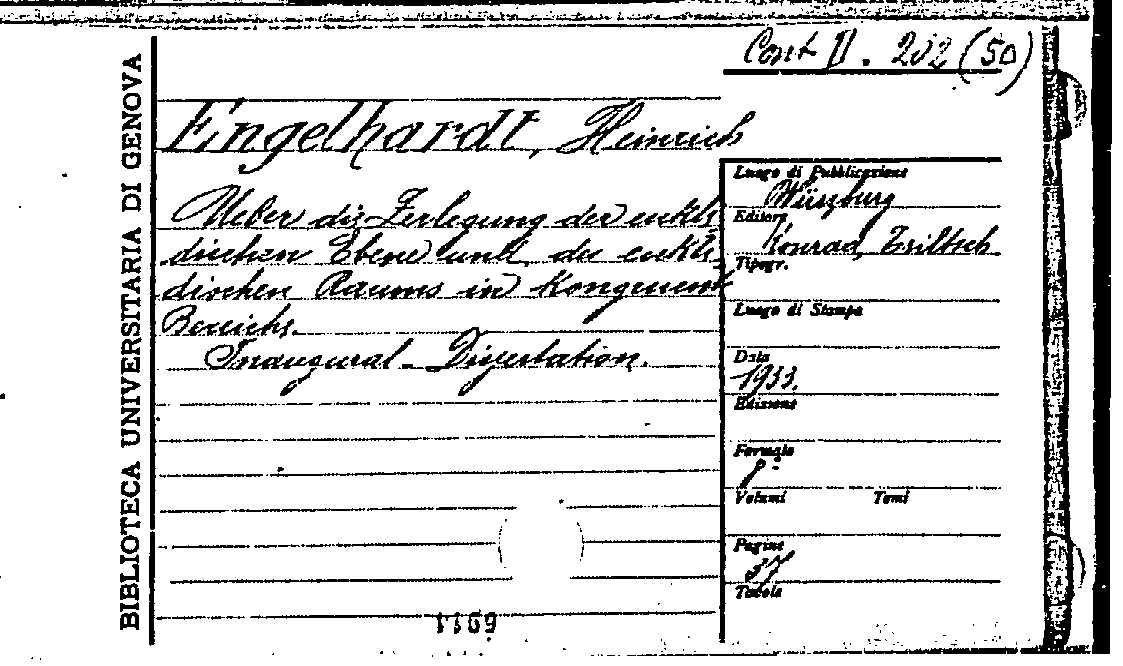 Cont II. 202 (50)
BIBLIOTECA UNIVERSITARIA DI GENOVA
Engelhardt, Heinrich
Ueber die Zerlegung der eukli-
dischen Ebene und des eukli-
dischen Raums in Kongruent
Bereiche.
Inaugural-Dissertation.
Luogo di Pubblicazione
Würzburg
Editore
Konrad Triltsch
Tipogr.
Luogo di Stampa
Data
1933.
Edizione
Formato
8°
Volumi Tomi
Pagine
37
Tavole
6911